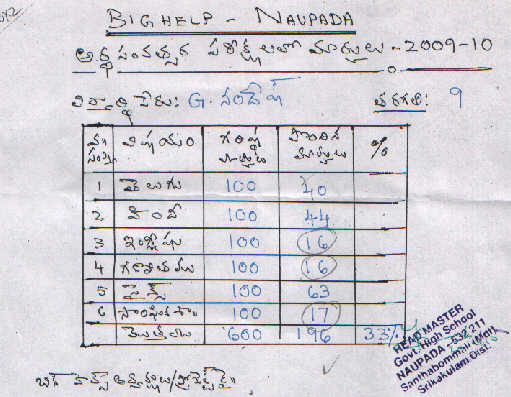 BIG HELP - NAUPADA
అర్థ సంవత్సర పరీక్షలలో మార్కులు - 2009-10
విద్యార్థి పేరు: G. సందేష్ తరగతి: 9
వ. సంఖ్య విషయం గరిష్ఠ మార్కులు పొందిన మార్కులు %
1 తెలుగు 100 40
2 హిందీ 100 44
3 ఇంగ్లీషు 100 16
4 గణితము 100 16
5 సైన్స్ 100 63
6 సాంఘిక శా 100 17
మొత్తము 600 196 33%
HEAD MASTER
Govt. High School
NAUPADA - 532 211
Santhabommali (Md)
Srikakulam Dist.
బిగ్ హెల్ప్